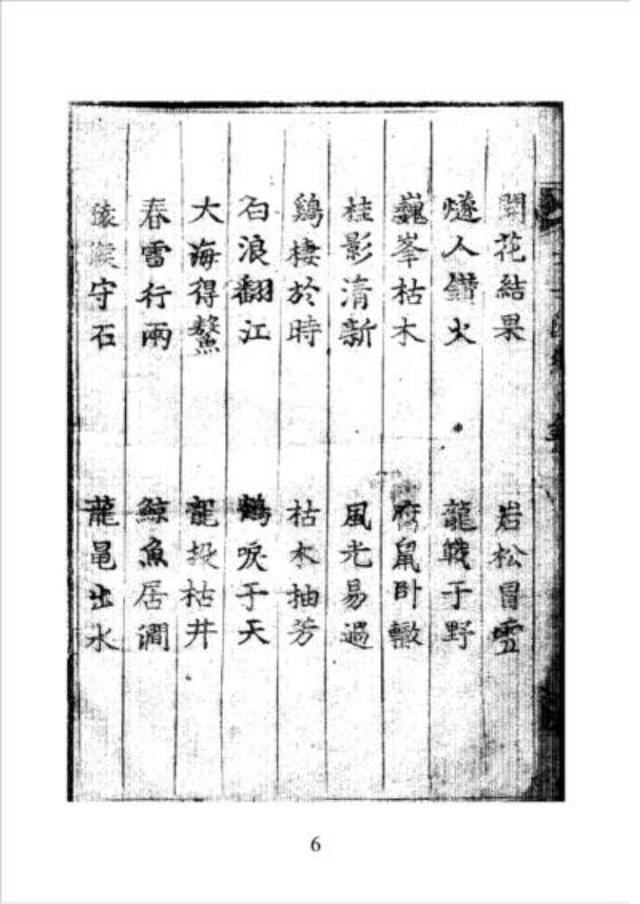 開花結果 岩松冒雪
燧人鑽火 龍戰于野
巍峯枯木 腐鼠卧轍
桂影清新 風光易過
鷄棲於時 枯木抽芳
白浪翻江 鶴唳于天
大海得鰲 龍投枯井
春雷行雨 鯨魚居澗
守石 龍黽出水
6